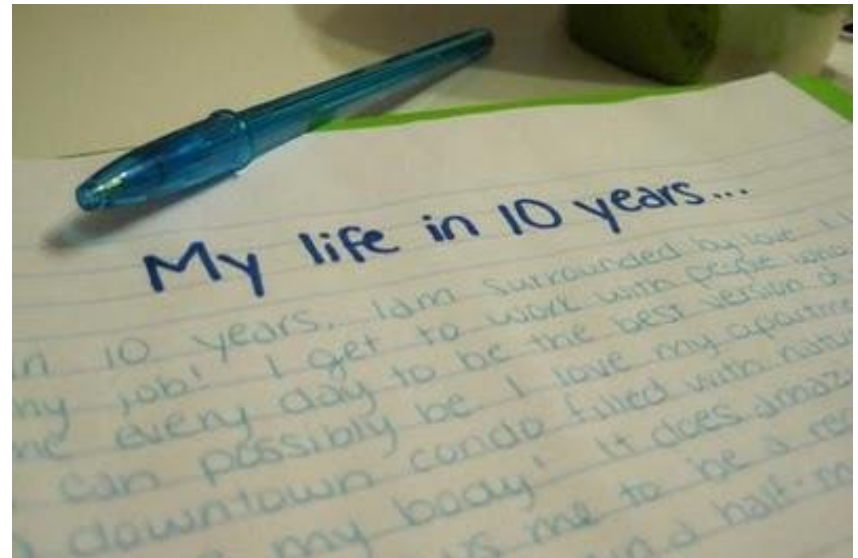 My life in 10 years...
in 10 years, I am surrounded by love. I
my job! I get to work with people who
me every day to be the best version of
I can possibly be I love my apartme
downtown condo filled with natu
my body! It does amazi
us me to be a rec
a half-m